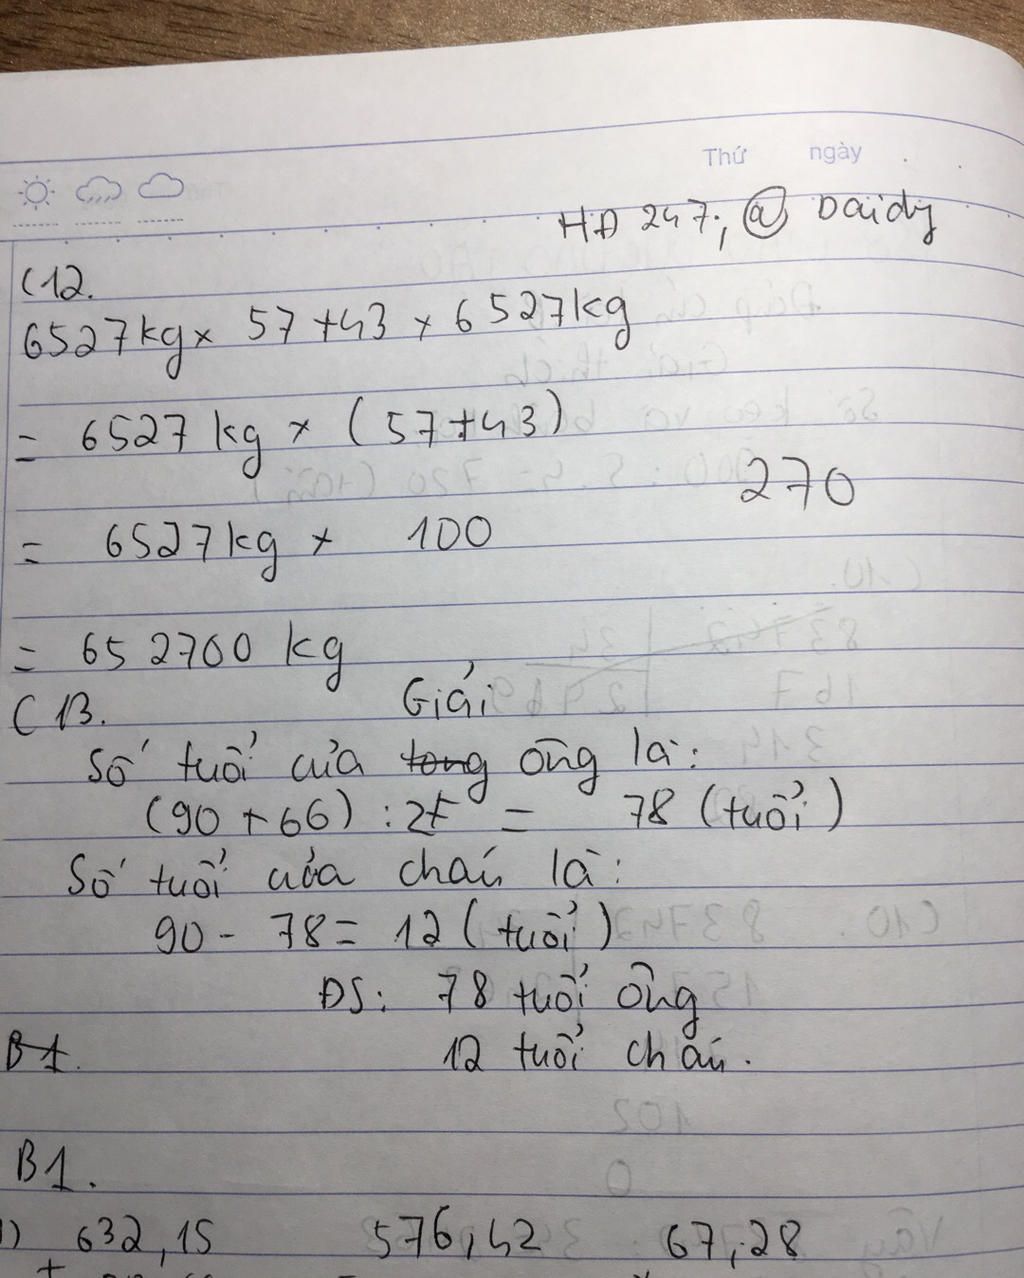 Thứ ngày
HD 247; @ Daidy
C12.
6527kg x 57 + 43 x 6527kg
= 6527 kg x (57 + 43)
270
= 6527kg x 100
= 652700 kg
C13. Giải
Số tuổi của tong ông là:
(90 + 66) : 2 = 78 (tuổi)
Số tuổi của cháu là:
90 - 78 = 12 (tuổi)
ĐS: 78 tuổi ông
B1. 12 tuổi cháu.
B1.
1) 632,15 576,42 67,28
+